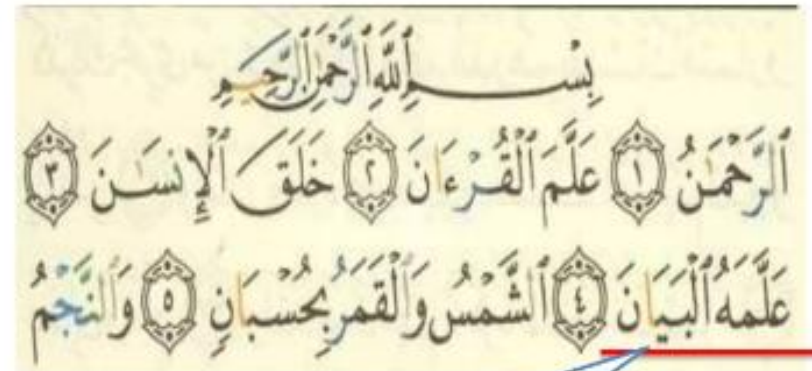 بِسْمِ ٱللَّهِ ٱلرَّحْمَٰنِ ٱلرَّحِيمِ
ٱلرَّحْمَٰنُ ١ عَلَّمَ ٱلْقُرْءَانَ ٢ خَلَقَ ٱلْإِنسَٰنَ ٣
عَلَّمَهُ ٱلْبَيَانَ ٤ ٱلشَّمْسُ وَٱلْقَمَرُ بِحُسْبَانٍ ٥ وَٱلنَّجْمُ